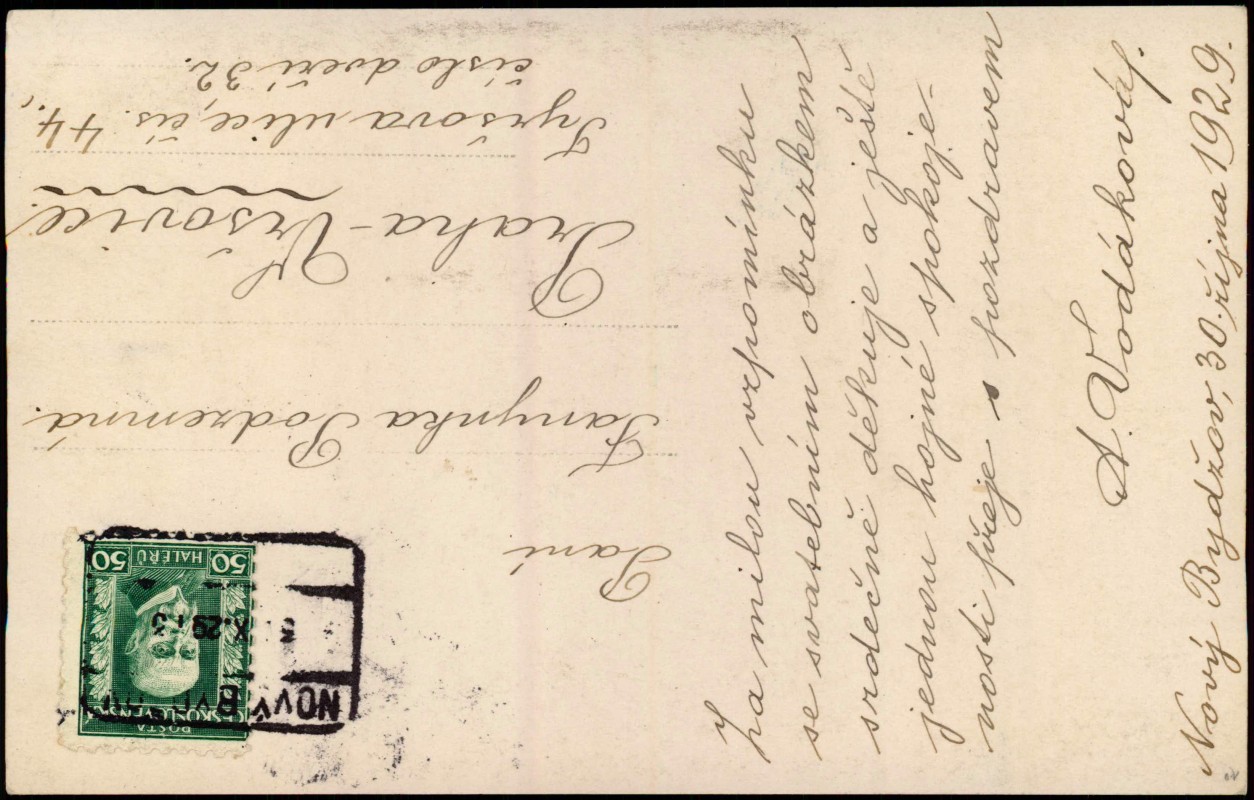 Za milou vzpomínku
se svatebním obrázkem
srdečně děkuje a ještě
jednou hojné spokoje-
nosti přeje s pozdravem
A. Vodáková.
Nový Bydžov, 30. října 1929.
POŠTA
ČESKOSLOVENSKÁ
50 HALÉŘŮ 50
NOVÝ
X.29
Paní
Fanynka Podzemná.
Praha - Vršovice.
Tyršova ulice, čís. 44.,
číslo dveří 32.